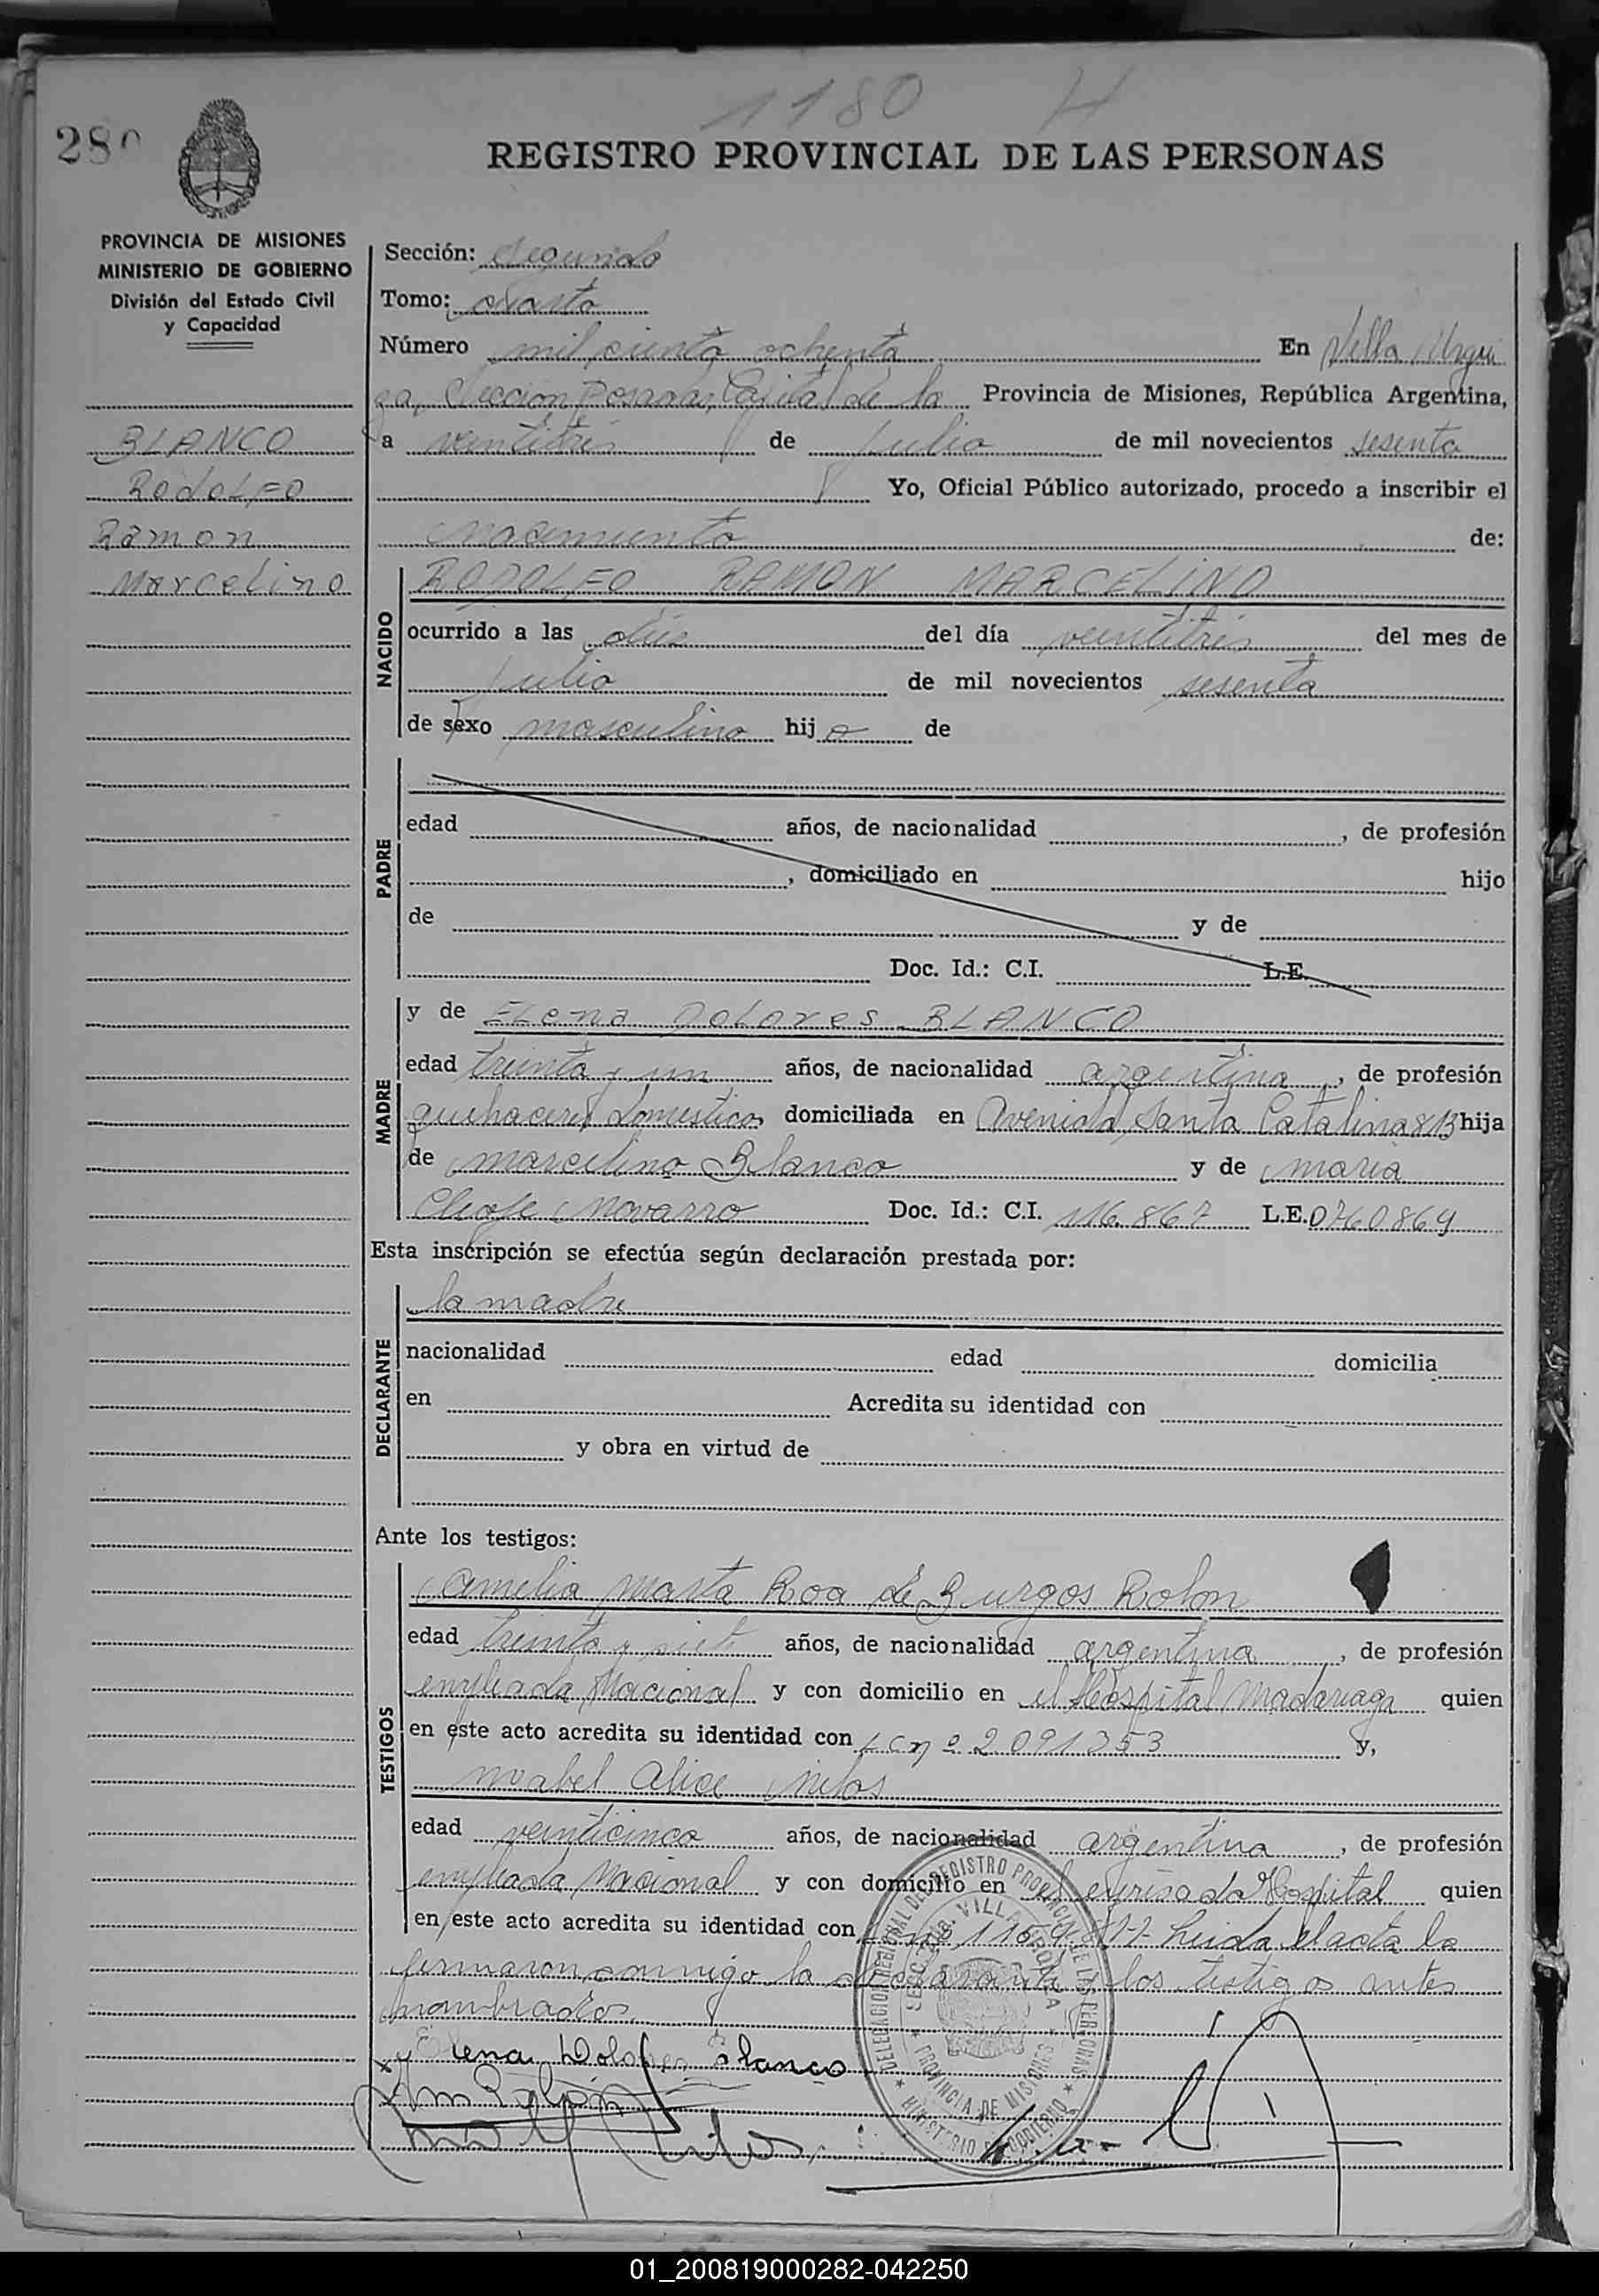 1180 H
280
REGISTRO PROVINCIAL DE LAS PERSONAS
PROVINCIA DE MISIONES
MINISTERIO DE GOBIERNO
División del Estado Civil
y Capacidad
BLANCO
RODOLFO
Ramon
Marcelino
Sección: Segunda
Tomo: cuarto
Número mil ciento ochenta En Villa Urqui
za, Sección Posadas, Capital de la Provincia de Misiones, República Argentina,
a ventitres de julio de mil novecientos sesenta
Yo, Oficial Público autorizado, procedo a inscribir el
nacimiento de:
NACIDO
RODOLFO RAMON MARCELINO
ocurrido a las diez del día ventitres del mes de
julio de mil novecientos sesenta
de sexo masculino hij o de
PADRE
edad años, de nacionalidad , de profesión
, domiciliado en hijo
de y de
Doc. Id.: C.I. L.E.
MADRE
y de Elena Dolores BLANCO
edad treinta y un años, de nacionalidad argentina, de profesión
quehaceres domesticos domiciliada en Avenida Santa Catalina 813 hija
de Marcelino Blanco y de Maria
Cleofe Navarro Doc. Id.: C.I. 116.867 L.E. 0760869
Esta inscripción se efectúa según declaración prestada por:
DECLARANTE
la madre
nacionalidad edad domicilia
en Acredita su identidad con
y obra en virtud de
Ante los testigos:
TESTIGOS
Amelia Marta Roa de Burgos Rolon
edad treinta y siete años, de nacionalidad argentina, de profesión
empleada Nacional y con domicilio en el Hospital Madariaga quien
en este acto acredita su identidad con L C nº 2091353 y,
Mabel Alice
edad veinticinco años, de nacionalidad argentina, de profesión
empleada Nacional y con domicilio en el Hospital quien
en este acto acredita su identidad con Leida el acta la
firmaron conmigo la declarante y los testigos antes
nombrados.
Elena Dolores Blanco
DELEGACION REGIONAL DEL REGISTRO PROVINCIAL DE LAS PERSONAS
SECC. VILLA URQUIZA
PROVINCIA DE MISIONES
MINISTERIO DE GOBIERNO
01_200819000282-042250